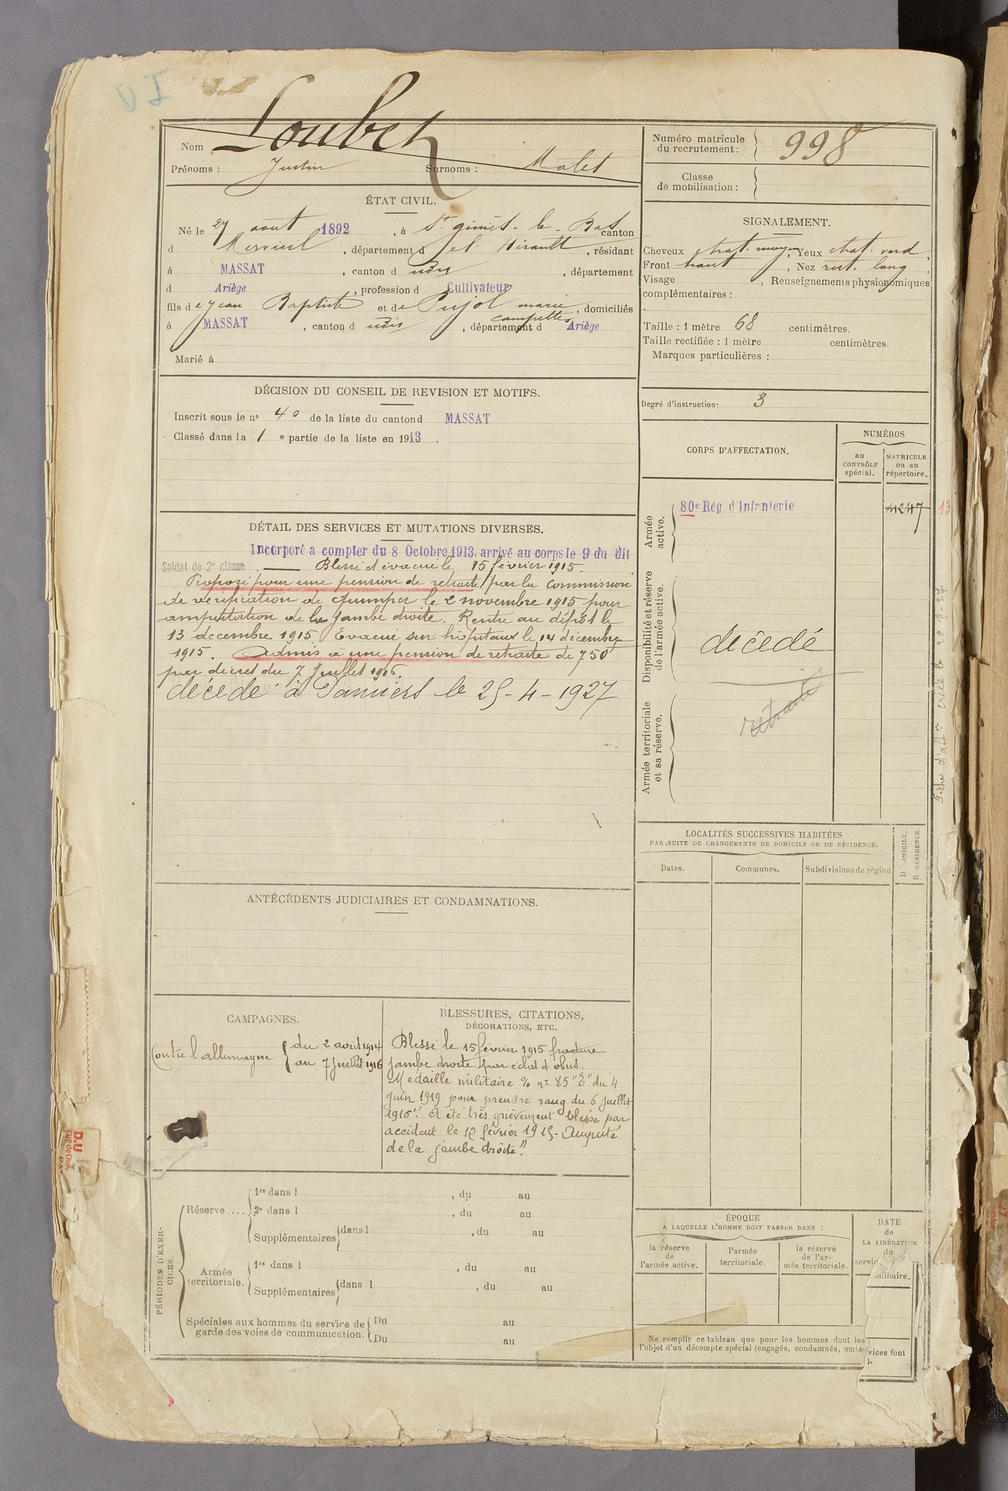 Nom Loubet
Prénoms : Justin Surnoms : Malet
Numéro matricule du recrutement : 998
Classe de mobilisation :
ÉTAT CIVIL.
Né le 27 août 1892, à St génies-le-Bas canton
d Murviel, département d el Hérault, résidant
à MASSAT, canton d udis, département
d Ariège, profession d Cultivateur
fils d e Jean Baptiste et de Pujol marie campette, domiciliés
à MASSAT, canton d udis, département d Ariège
Marié à
SIGNALEMENT.
Cheveux chat. moyen, Yeux chat. verd,
Front haut, Nez rect. long,
Visage , Renseignements physionomiques
complémentaires :
Taille : 1 mètre 68 centimètres.
Taille rectifiée : 1 mètre centimètres.
Marques particulières :
Degré d'instruction: 3
DÉCISION DU CONSEIL DE REVISION ET MOTIFS.
Inscrit sous le n° 40 de la liste du canton d MASSAT
Classé dans la 1 e partie de la liste en 1913.
CORPS D'AFFECTATION.
NUMÉROS
au CONTRÔLE spécial.
MATRICULE ou au répertoire.
Armée active.
80e Rég d'Infanterie
4247
13
Disponibilité et réserve de l'armée active.
décédé
Armée territoriale et sa réserve.
retraité
DÉTAIL DES SERVICES ET MUTATIONS DIVERSES.
Incorporé à compter du 8 Octobre 1913. arrivé au corps le 9 du dit
Soldat de 2e classe. Blessé évacué le 15 février 1915.
Proposé pour une pension de retraite par la commission
de vérification de Quimper le 2 novembre 1915 pour
amputation de la jambe droite. Rentré au dépôt le
13 décembre 1915 Evacué sur hôpitaux le 14 décembre
1915. Admis à une pension de retraite de 750f
par décret du 7 Juillet 1916.
décédé à Pamiers le 25-4-1927
LOCALITÉS SUCCESSIVES HABITÉES
PAR SUITE DE CHANGEMENTS DE DOMICILE OU DE RÉSIDENCE.
Dates.
Communes.
Subdivisions de région
D DOMICILE.
R RÉSIDENCE.
ANTÉCÉDENTS JUDICIAIRES ET CONDAMNATIONS.
CAMPAGNES.
Contre l'allemagne { du 2 août 1914
au 7 Juillet 1916
BLESSURES, CITATIONS,
DÉCORATIONS, ETC.
Blessé le 15 février 1915 fracture
jambe droite par éclat d'obus.
Médaille militaire % n° 85 "E" du 4
juin 1919 pour prendre rang du 6 juillet
1916". A été très grièvement blessé par
accident le 12 février 1915- Amputé
de la jambe droite".
PÉRIODES D'EXERCICES.
Réserve ....
1re dans l , du au
2e dans l , du au
Supplémentaires dans l , du au
Armée territoriale.
1re dans l , du au
Supplémentaires dans l , du au
Spéciales aux hommes du service de garde des voies de communication.
Du au
Du au
ÉPOQUE
A LAQUELLE L'HOMME DOIT PASSER DANS :
la réserve de l'armée active.
l'armée territoriale.
la réserve de l'armée territoriale.
DATE de LA LIBÉRATION du service militaire.
Ne remplir ce tableau que pour les hommes dont les services font
l'objet d'un décompte spécial (engagés, condamnés, omis